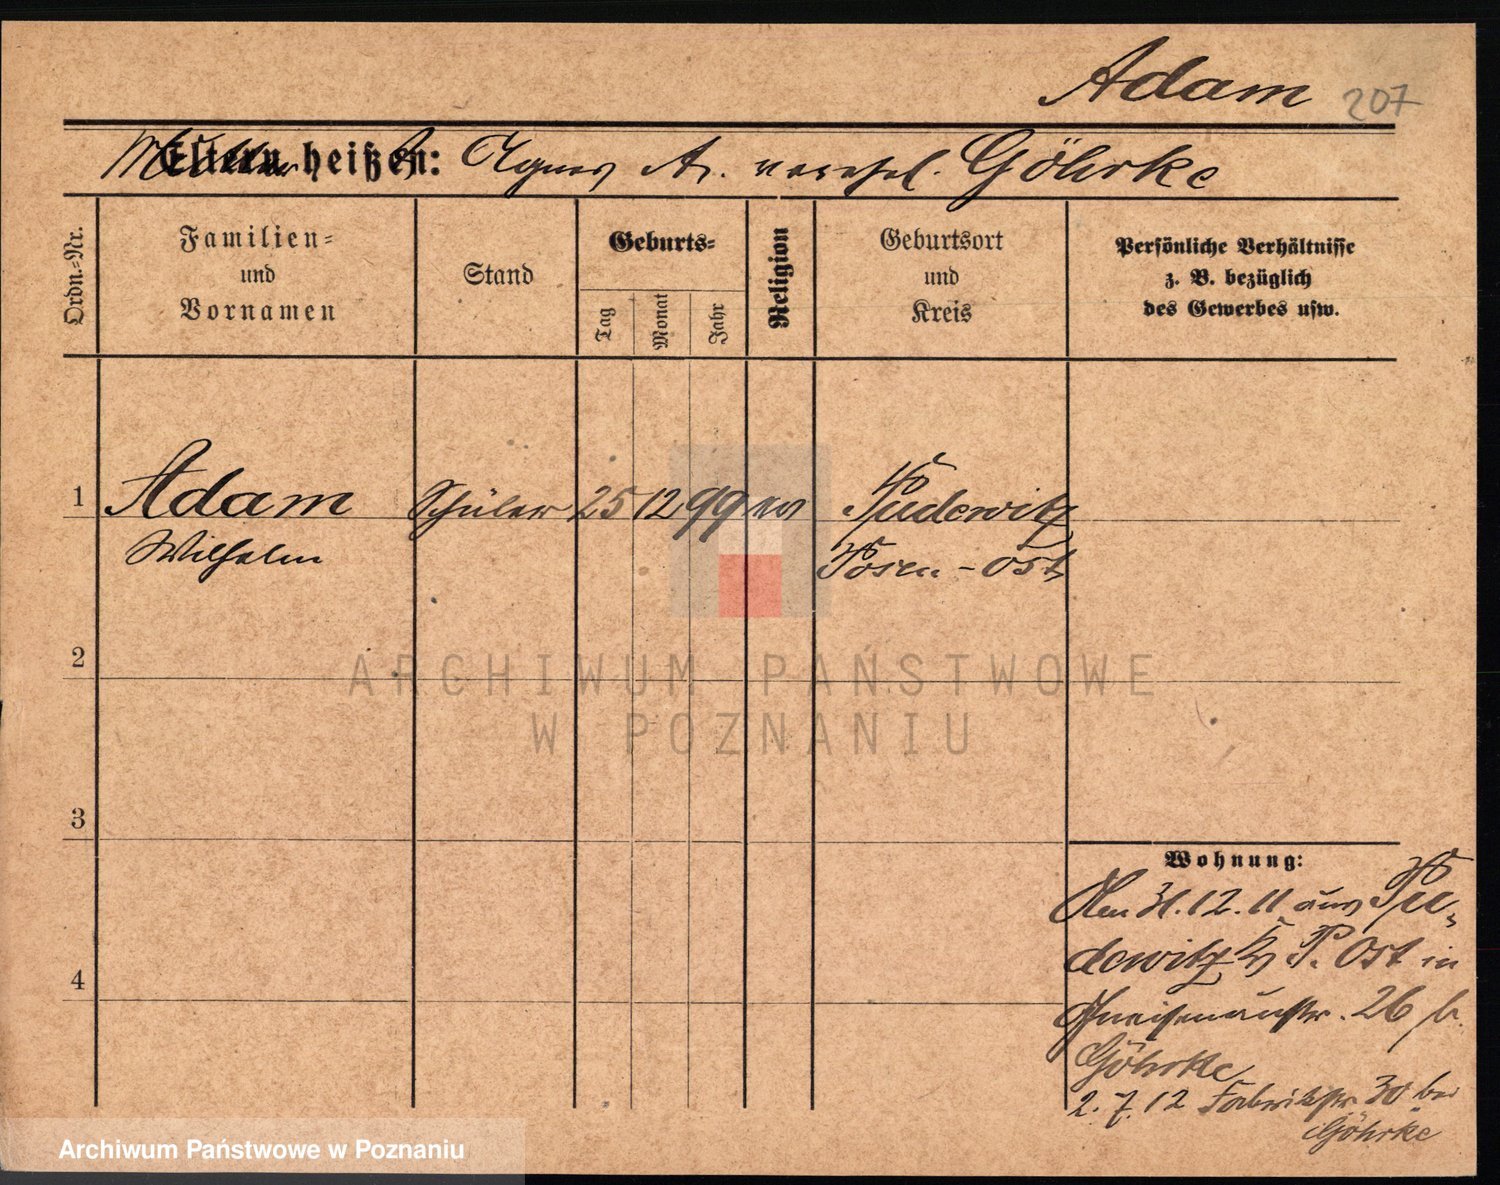 Adam 207
Mutter heißen: Agnes A. verehel. Göhrke
Ordn.-Nr.
Familien-
und
Vornamen
Stand
Geburts-
Tag
Monat
Jahr
Religion
Geburtsort
und
Kreis
Persönliche Verhältnisse
z. B. bezüglich
des Gewerbes usw.
1 Adam Schüler 25 12 99 ev Pudewitz
Wilhelm Posen-Ost
2
ARCHIWUM PAŃSTWOWE
W POZNANIU
3
Wohnung:
Am 31.12.11 aus Pu-
dewitz Krs P. Ost in
4
Gneisenaustr. 26 b.
Göhrke
2.7.12 Fabrikstr 30 bei
Göhrke
Archiwum Państwowe w Poznaniu